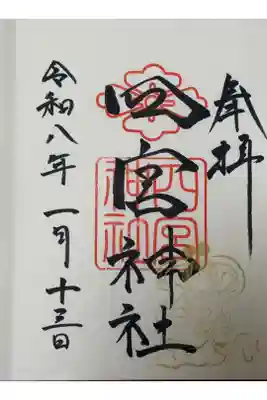 奉拝
四宮神社
四宮神社
令和八年 一月 十三日